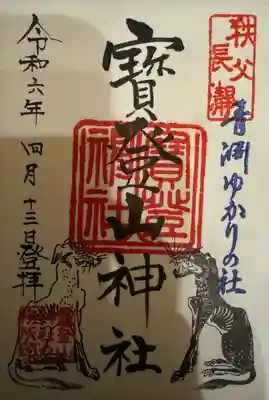 秩父
長瀞
青渊ゆかりの社
寳登山神社
寳登山
神社
令和六年 四月 十三日登拝